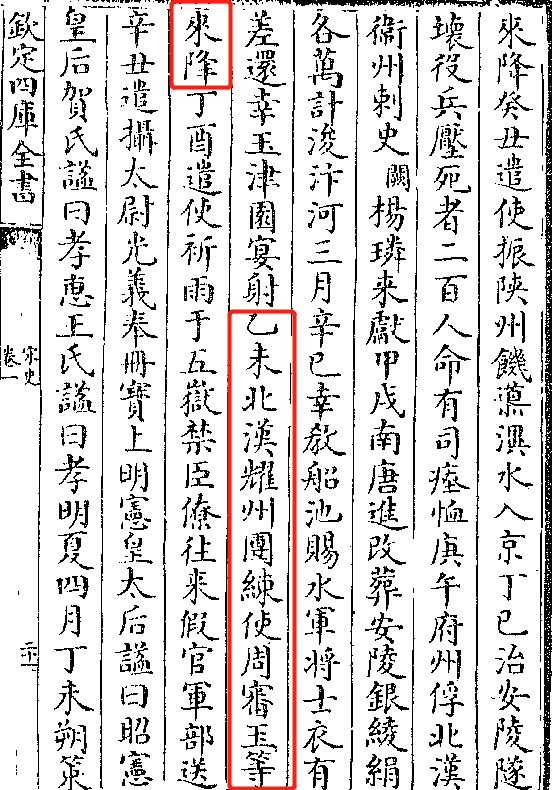 來降癸丑遣使振陝州饑蓂潩水入京丁巳治安陵隧
壞役兵壓死者二百人命有司瘞恤庚午府州俘北漢
衛州刺史闕楊璘來獻甲戌南唐進改葬安陵銀綾絹
各萬計浚汴河三月辛巳幸教船池賜水軍將士衣有
差還幸玉津園宴射乙未北漢耀州團練使周審玉等
來降丁酉遣使祈雨于五嶽禁臣僚往來假官軍部送
辛丑遣攝太尉光義奉冊寶上明憲皇太后諡曰昭憲
皇后賀氏諡曰孝惠王氏諡曰孝明夏四月丁未朔策
欽定四庫全書
宋史
卷一